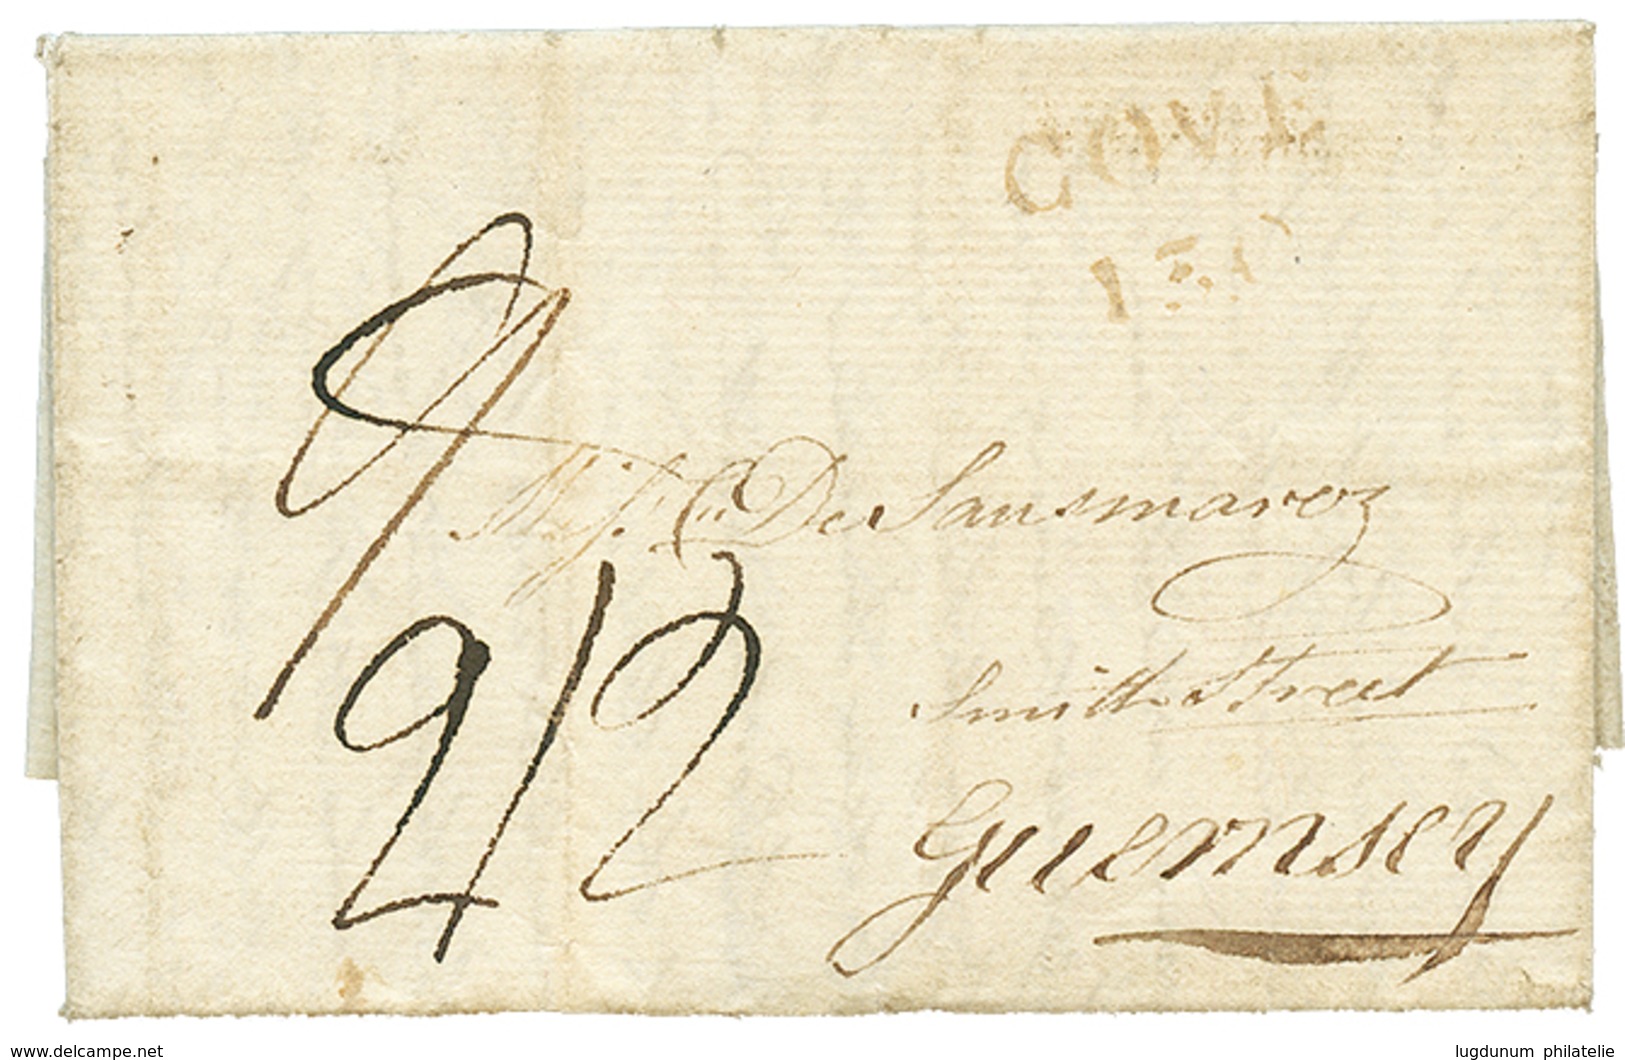 COVE
Miss Cn De Sausmarez
Smith Street
Guernsey
2/2
www.delcampe.net
lugdunum philatelie